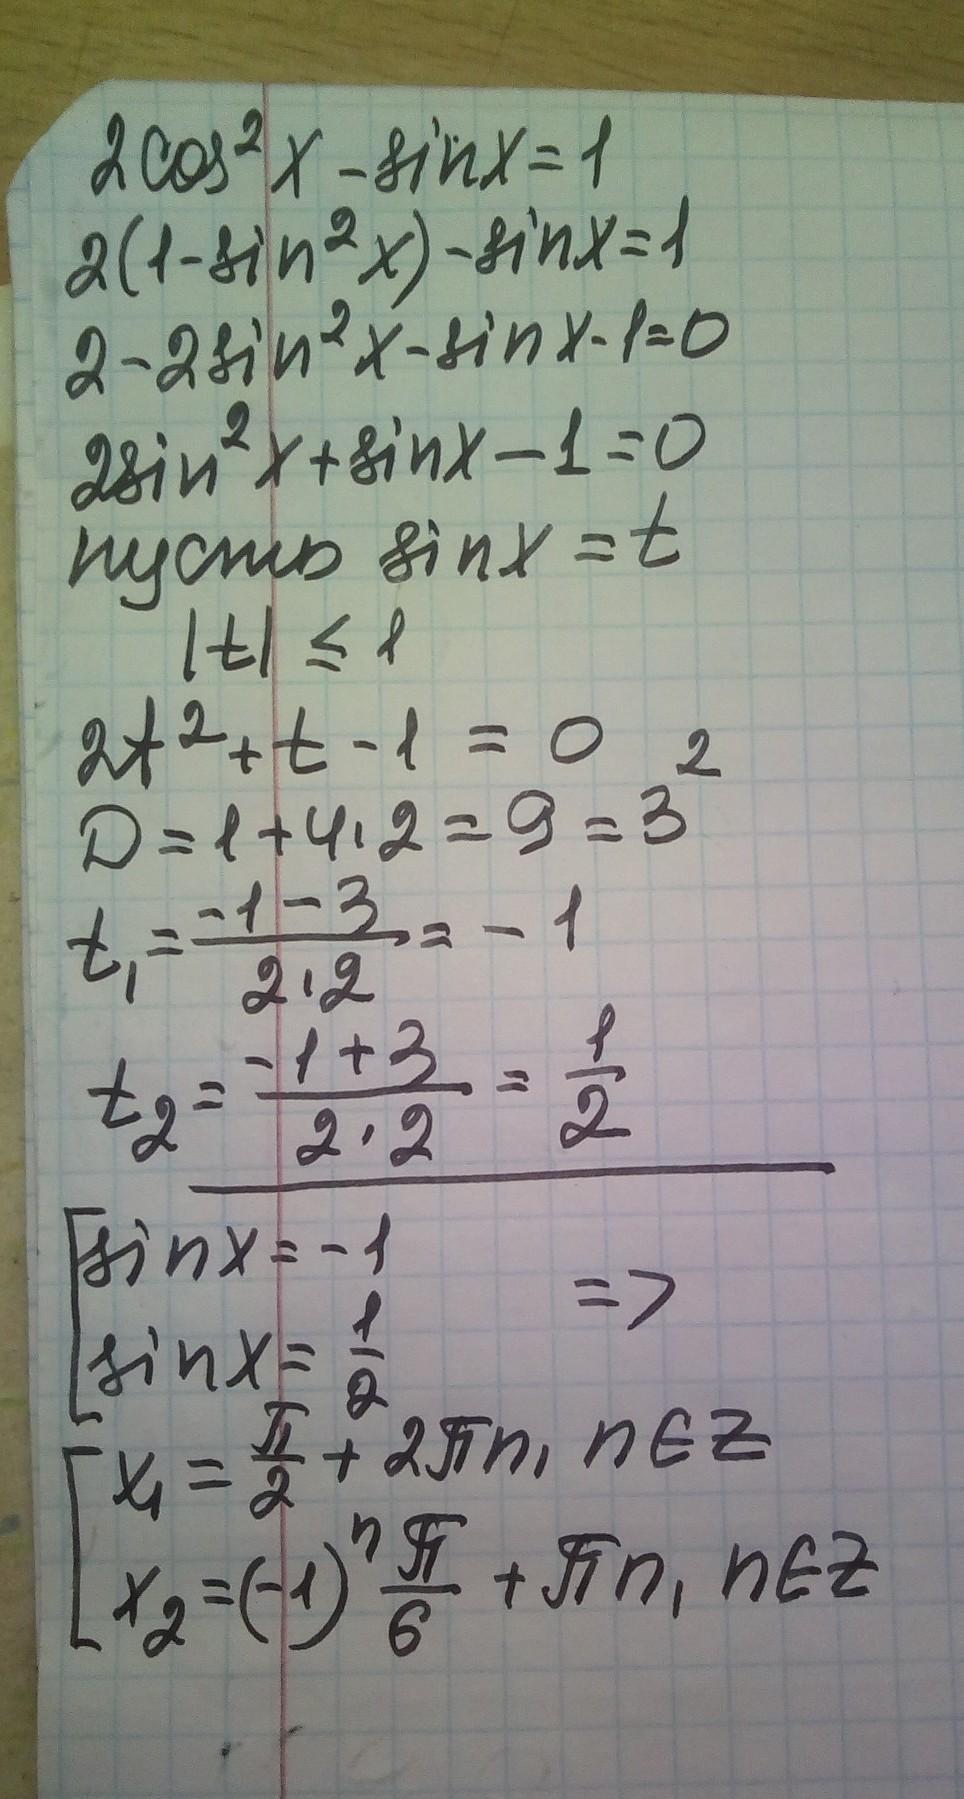 2cos²x - sinx = 1
2(1 - sin²x) - sinx = 1
2 - 2sin²x - sinx - 1 = 0
2sin²x + sinx - 1 = 0
пусть sinx = t
|t| ≤ 1
2t² + t - 1 = 0
D = 1 + 4·2 = 9 = 3²
t₁ = (-1 - 3)/(2·2) = -1
t₂ = (-1 + 3)/(2·2) = 1/2
[sinx = -1 =>
[sinx = 1/2
[x₁ = π/2 + 2πn, n∈Z
[x₂ = (-1)ⁿ π/6 + πn, n∈Z